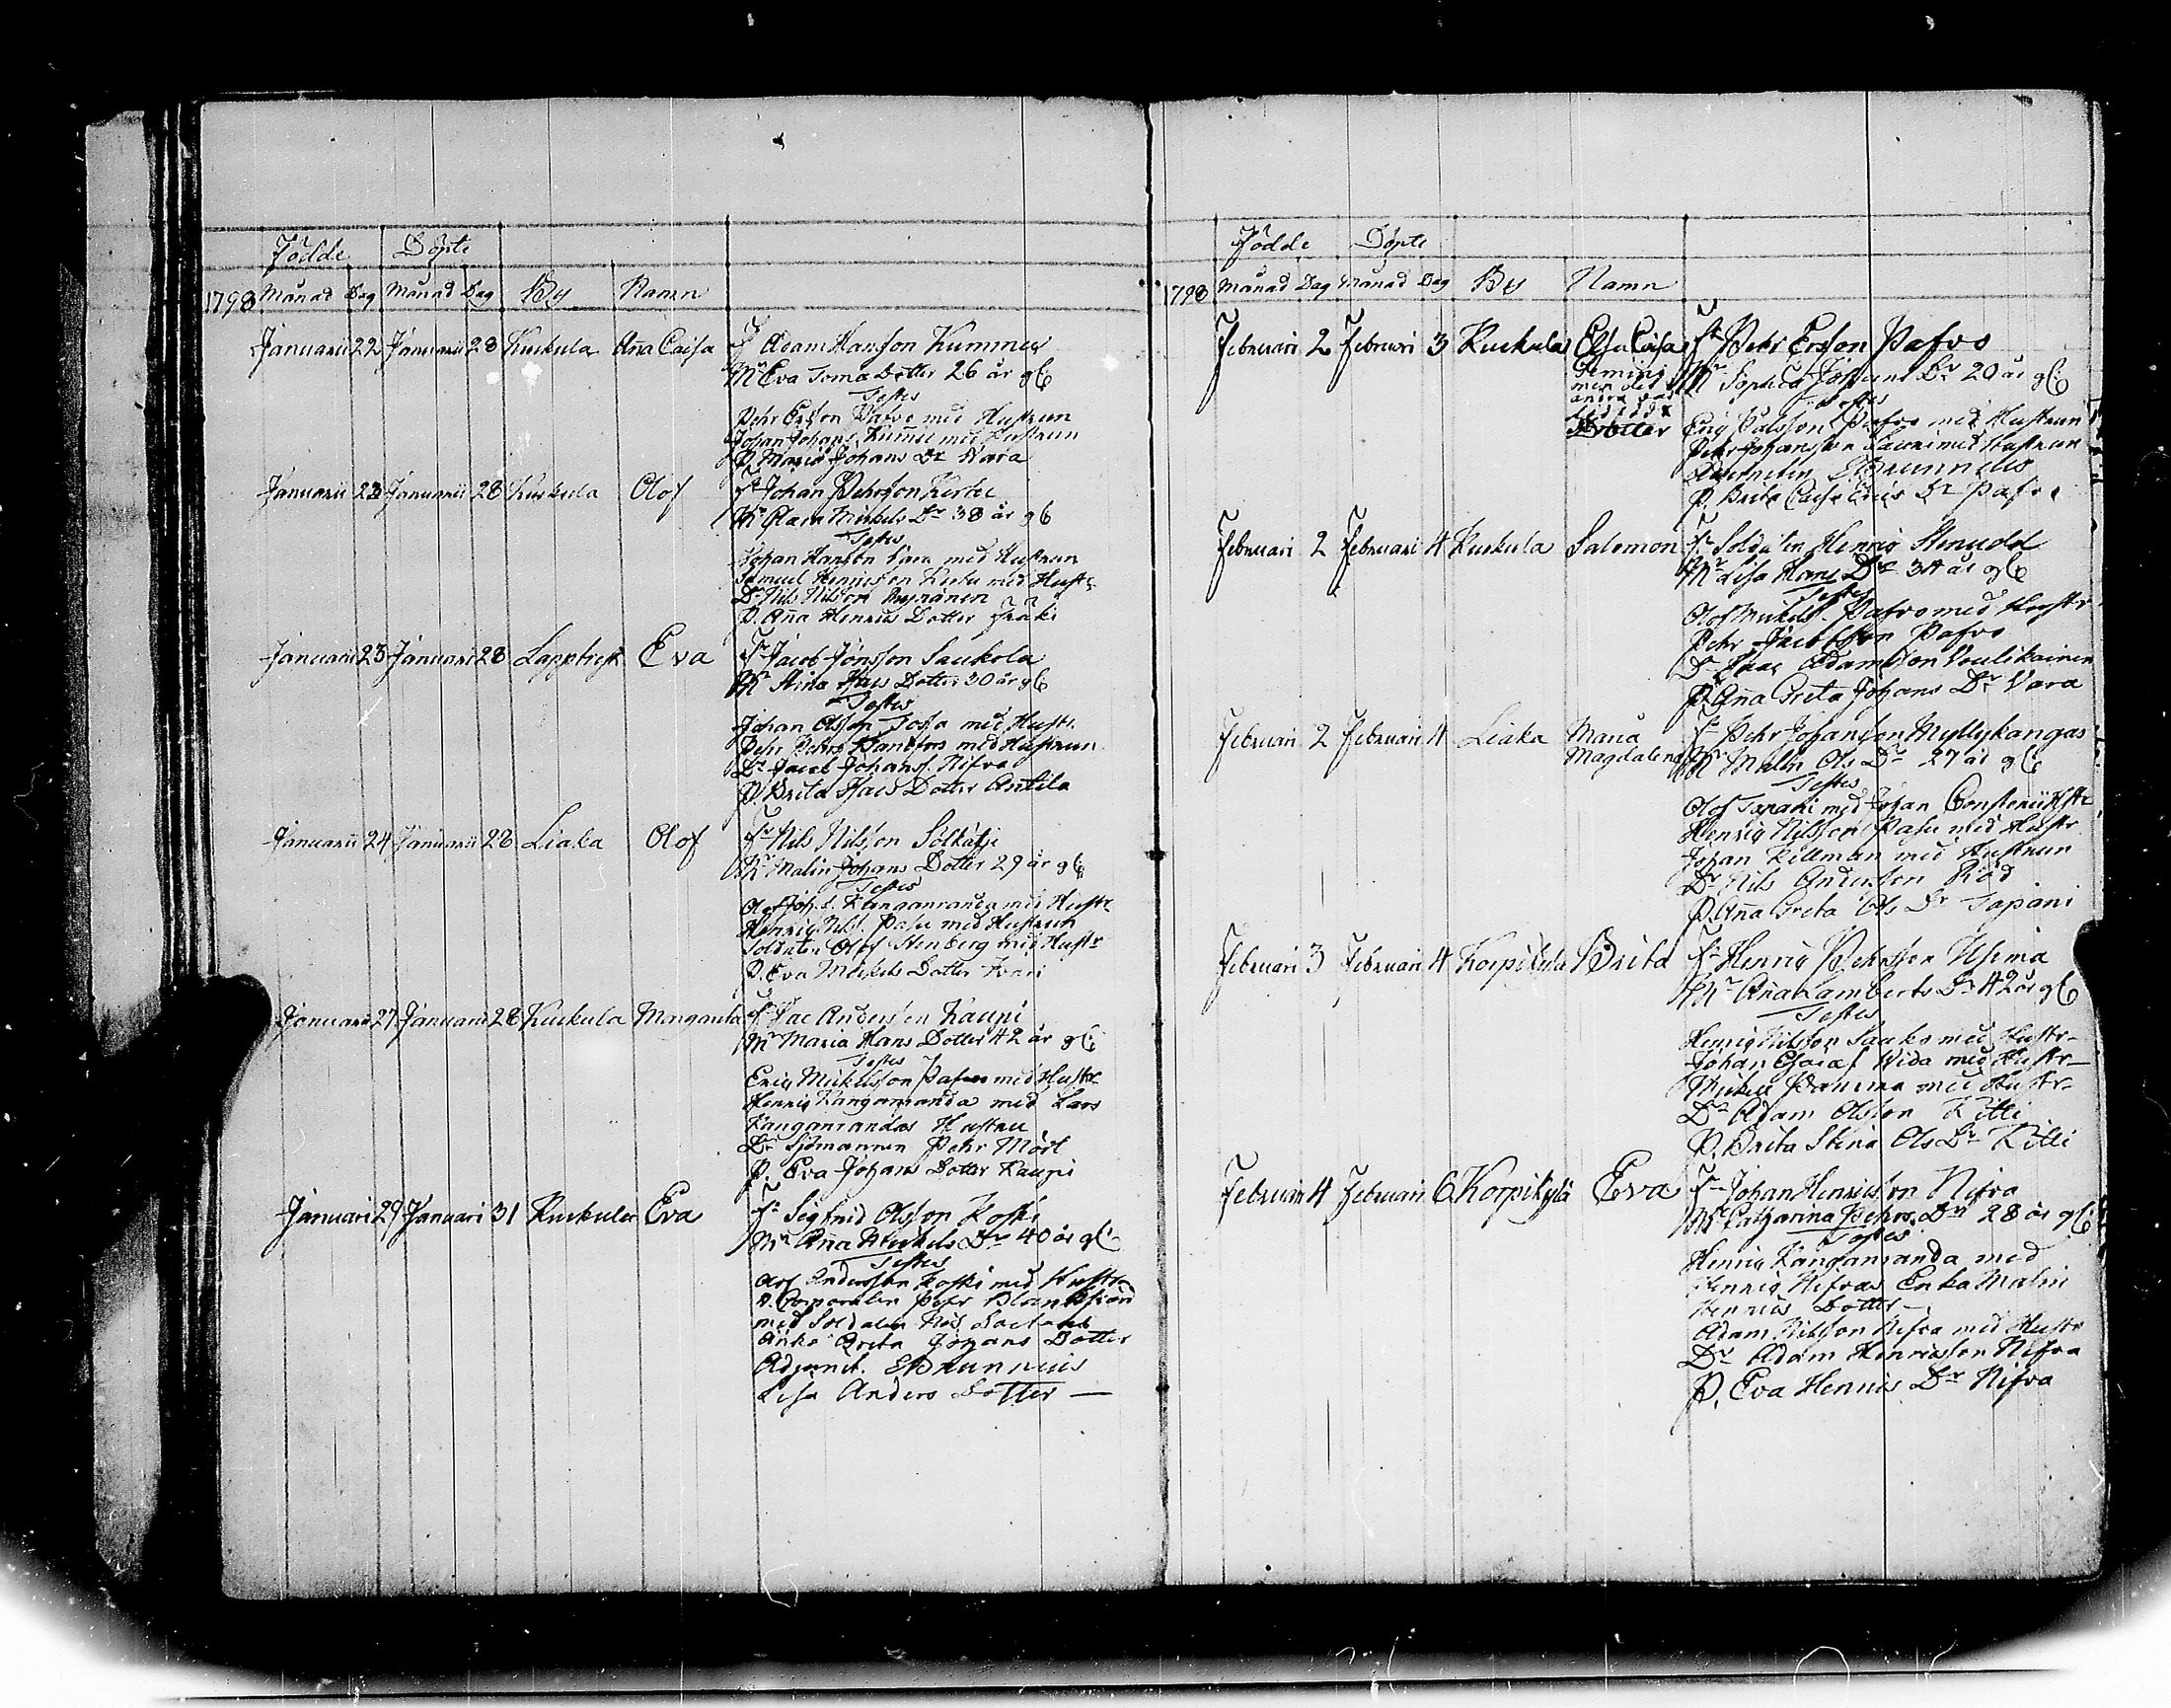 Födde Döpte
1798 Månad Dag Månad Dag By Namn
Januarii 22 Januarii 28 Kuckula Aña Caisa
Fr Adam Hansson Kummu
Mr Eva Toma Dotter 26 år gl
Testes
Pehr Ersson Pafvo med Hustrun
Johan Johans. Kummu med Hustrun
P. Maria Johans Dr Vara
Januarii 23 Januarii 28 Kuckula Olof
Fr Johan Pehrsson
Mr Clara Mickels Dr 38 år gl
Testes
Johan Hansson Vara med Hustrun
Samuel Henricsson med Hustr
Dr Nils Nilsson
P. Aña Henrics Dotter
Januarii 23 Januarii 28 Lappträsk Eva
Fr Jacob Jönsson Saukola
Mr Stina Isacs Dotter 30 år gl
Testes
Johan Olsson med Hustr.
Pehr Pehrs. med Hustrun
Dr Jacob Johanss. Nifva
P. Brita Isacs Dotter Antila
Januarii 24 Januarii 28 Liaka Olof
Fr Nils Nilsson
Mr Malin Johans Dotter 29 år gl
Testes
Olof Joh.s. Kangamranda med Hustr
Henric Nils. Pasu med Hustrun
Soldaten Olof Stenberg med Hustr
P. Eva Mickels Dotter
Januarii 27 Januarii 28 Kuckula Margareta
Fr Isac Andersson Kaupi
Mr Maria Hans Dotter 42 år gl
Testes
Eric Mickelsson Pafvo med Hustr
Henric Kangamranda med Lars
Kangamrandas Hustru
Dr Sjömannen Pehr Mört
P. Eva Johans Dotter Kaupi
Januari 29 Januari 31 Kuckula Eva
Fr Sigfrid Olsson Koski
Mr Aña Mickels Dr 40 år gl
Testes
Olof Andersson Koski med Hustr
Corporalen Pehr
med Soldaten
Enka Brita Johans Dotter
Adjunct. E Brunnius
Lisa Anders Dotter —
Födde Döpte
1798 Månad Dag Månad Dag By Namn
Februari 2 Februari 3 Kuckula Elsa Caisa
men det
andra var
Dotter
Fr Pehr Ersson Pafvo
Mr Sophia Johans Dr 20 år gl
Testes
Eric Pålsson Pafvo med Hustrun
Pehr Johansson med Hustrun
Adjuncten E Brunnius
P. Brita Caisa Erics Dr Pafvo
Februari 2 Februari 4 Kuckula Salomon
Fr Soldaten Henric Stenudd
Mr Lisa Hans Dr 34 år gl
Testes
Olof Mickels. Pafvo med Hustr.
Pehr Jacobsson Pafvo
Dr Isac Adamsson Voulikainen
P. Aña Greta Johans Dr Vara
Februari 2 Februari 4 Liaka Maria
Magdalena
Fr Pehr Johansson Myllykangas
Mr Malin Ols Dr 27 år gl
Testes
Olof Tapani med Johan Hustr
Henric Nilsson Pasu med Hustr
Johan Killman med Hustrun
Dr Nils Andersson Röd
P. Aña Greta Ols Dr Tapani
Februari 3 Februari 4 Korpikylä Brita
Fr Henric Pehrsson Usima
Mr Aña Lamberts Dr 42 år gl
Testes
Henric Nilsson med Hustr
Johan Esaias. Wida med Hustr
Mickel med Hustr
Dr Adam Olsson Kitti
P. Brita Stina Ols Dr Kitti
Februari 4 Februari 6 Korpikylä Eva
Fr Johan Henricsson Nifva
Mr Catharina Pehrs Dr 28 år gl
Testes
Henric Kangamranda med
Henric Nifvas Enka Malin
Henrics Dotter —
Adam Nilsson Nifva med Hustr
Dr Adam Henricsson Nifva
P. Eva Henrics Dr Nifva